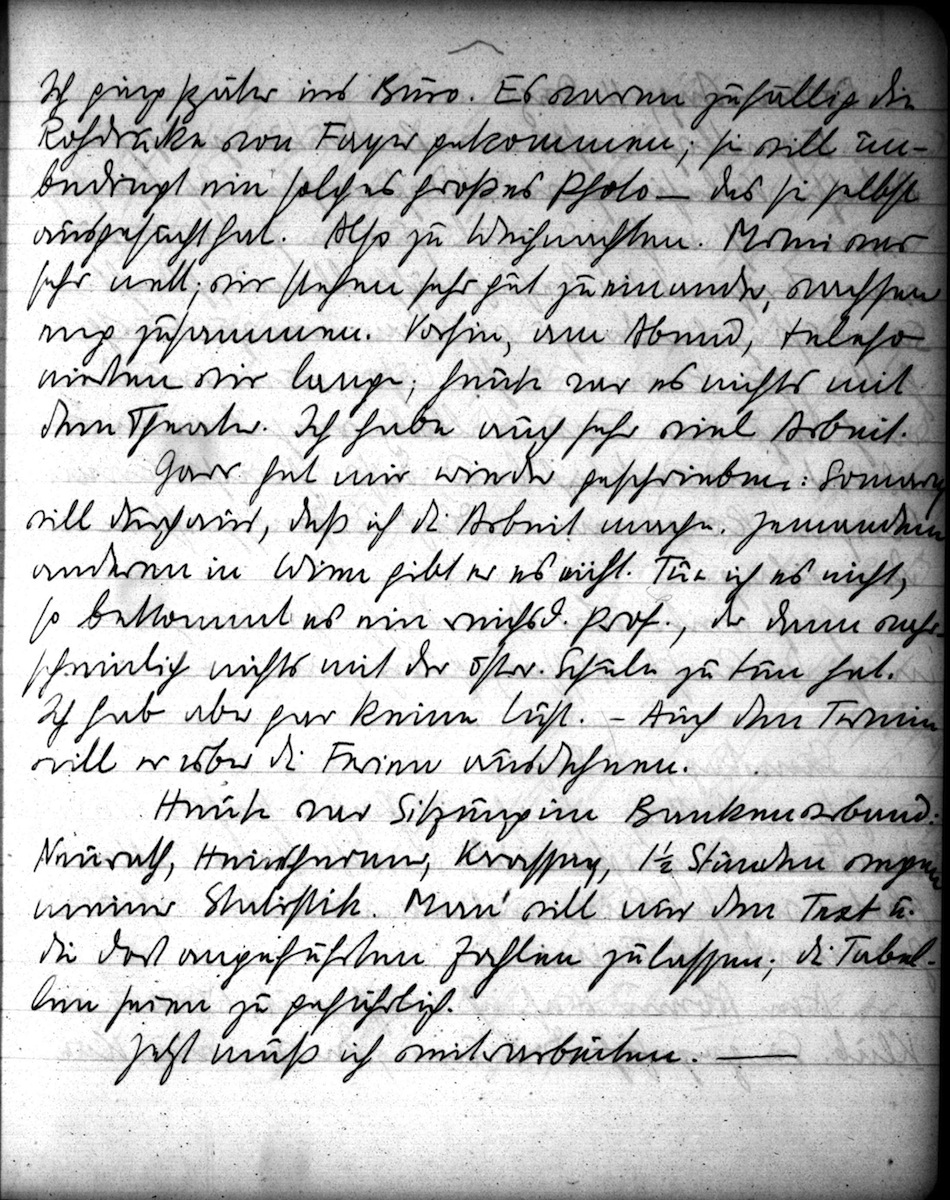 Ich ging später ins Büro. Es waren zufällig die
Rohdrucke von Fayer gekommen; sie will un-
bedingt ein solches großes Photo – das sie selbst
ausgesucht hat. Also zu Weihnachten. Mimi war
sehr nett; wir stehen sehr gut zueinander, wachsen
eng zusammen. Vorhin, am Abend, telefo
nierten wir lange; heute war es nichts mit
dem Theater. Ich habe auch sehr viel Arbeit.
Garr hat mir wieder geschrieben: Somary
will durchaus, daß ich die Arbeit mache. Jemandem
anderen in Wien gibt er es nicht. Tue ich es nicht,
so bekommt es ein reichsd. Prof., der dann wahr
scheinlich nichts mit der öster. Schule zu tun hat.
Ich hab aber gar keine Lust. – Auch den Termin
will er über die Ferien ausdehnen.
Heute war Sitzung im Bankenverband:
Neurath, Krassny, 1½ Stunden wegen
meiner Statistik. Man will nur den Text u.
die dort angeführten Zahlen zulassen; die Tabel-
len seien zu gefährlich.
Jetzt muß ich weiterarbeiten. —